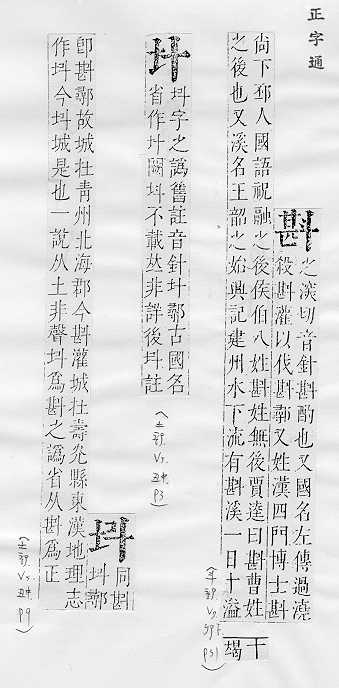 正字通
斟
之深切音針斟酌也又國名左傳過澆
殺斟灌以伐斟鄩又姓漢四門博士斟
尚下邳人國語祝融之後侯伯八姓斟姓無後賈逵曰斟曹姓
之後也又溪名王韶之始興記建州水下流有斟溪一日十溢
十
竭
字之譌舊註音針 鄩古國名
省作 闕 不載𠀤非詳後 註
同斟
鄩
即斟鄩故城在青州北海郡今斟灌城在壽光縣東漢地理志
作 今 城是也一說从土非聲 爲斟之譌省从斟爲正